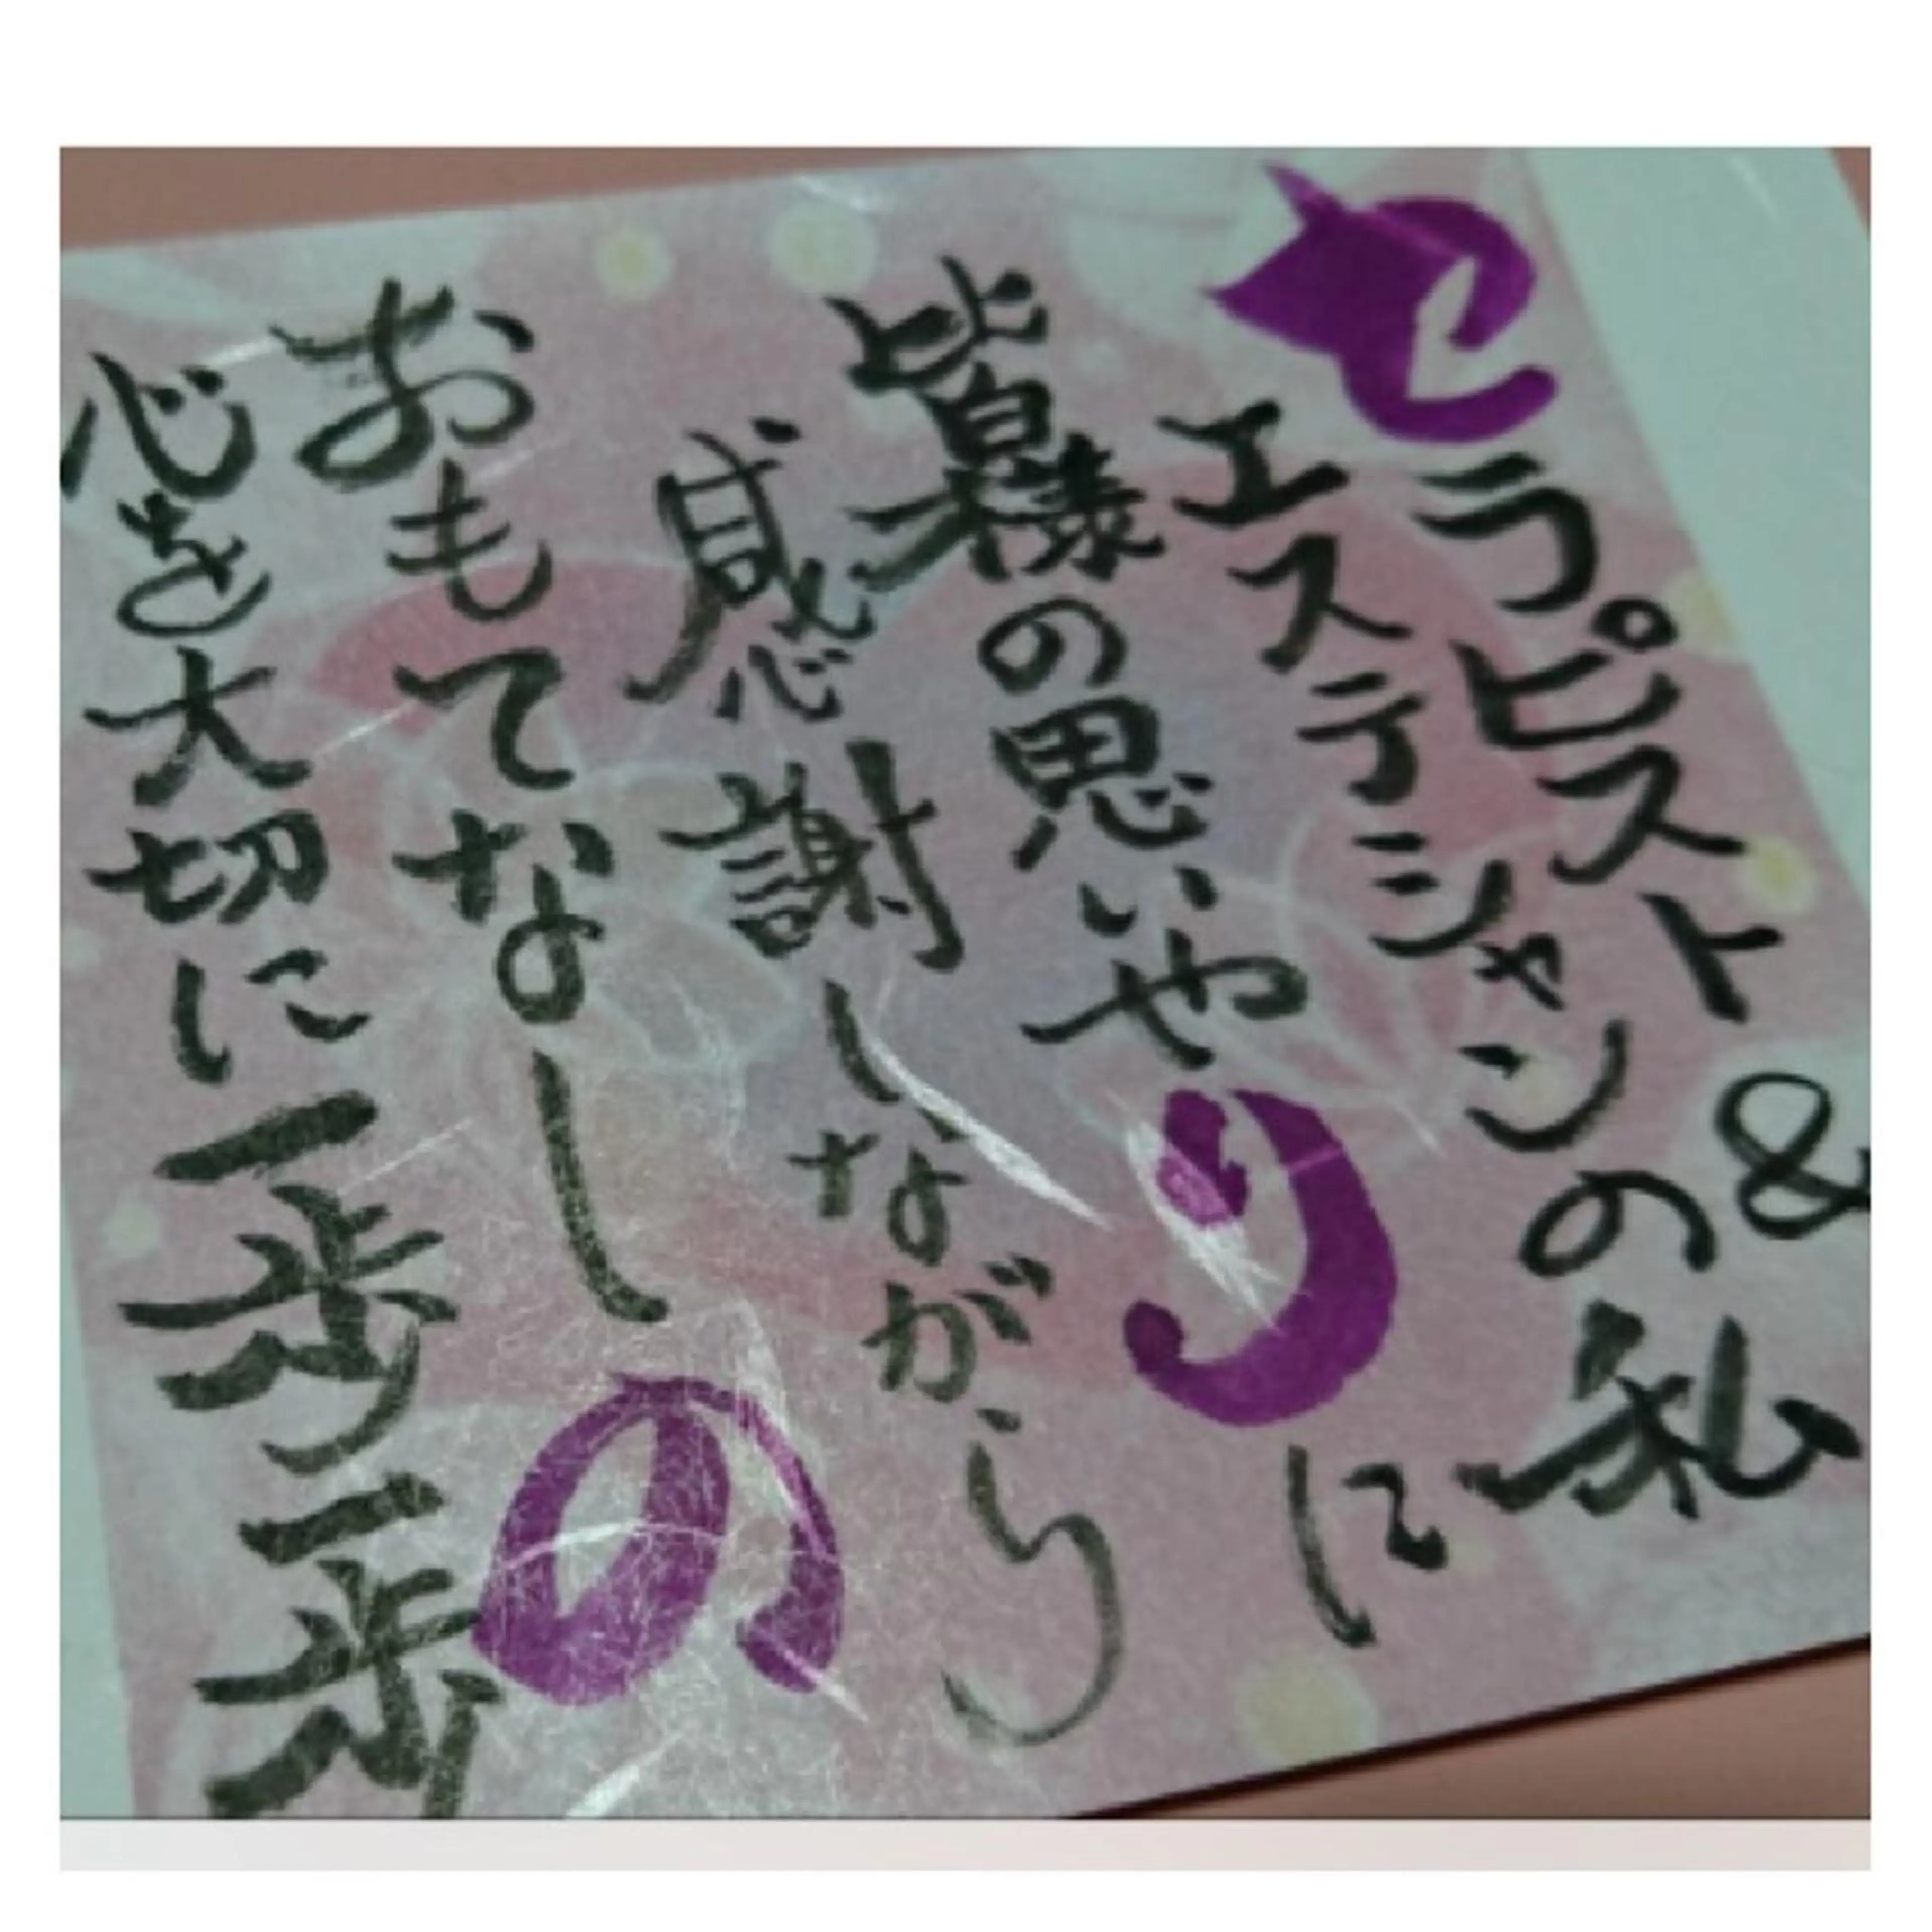 セラピスト&
エステテシャンの私
皆様の思いやりに
感謝しながら
おもてなしの
心を大切に一歩一歩